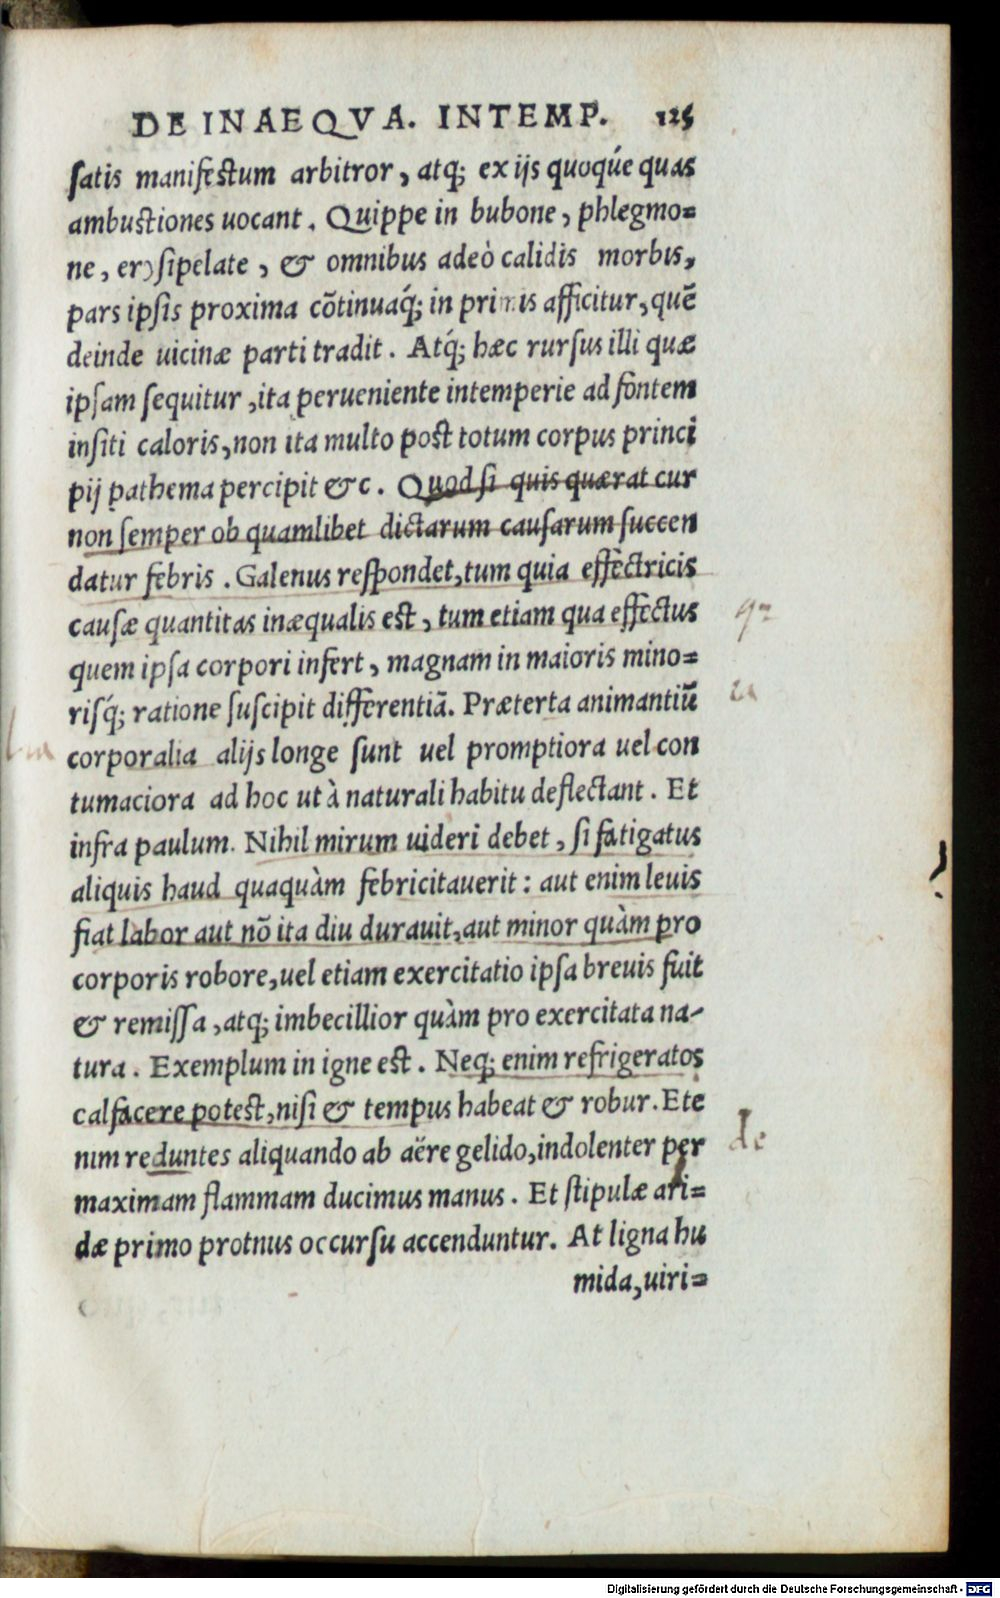 DE INAEQVA. INTEMP. 125
satis manifestum arbitror, atq; ex ijs quoqúe quas
ambustiones uocant. Quippe in bubone, phlegmo=
ne, erysipelate, & omnibus adeò calidis morbis,
pars ipsis proxima cõtinuaq́; in primis afficitur, quẽ
deinde uicinæ parti tradit. Atq́; hæc rursus illi quæ
ipsam sequitur, ita perueniente intemperie ad fontem
insiti caloris, non ita multo post totum corpus princi
pij pathema percipit &c. Quod si quis quærat cur
non semper ob quamlibet dictarum causarum succen
datur febris. Galenus respondet, tum quia effectricis
causæ quantitas inæqualis est, tum etiam qua effectus
quem ipsa corpori infert, magnam in maioris mino=
risq́; ratione suscipit differentiã. Præterta animantiũ
corporalia alijs longe sunt uel promptiora uel con
tumaciora ad hoc ut à naturali habitu deflectant. Et
infra paulum. Nihil mirum uideri debet, si fatigatus
aliquis haud quaquàm febricitauerit: aut enim leuis
fiat labor aut nõ ita diu durauit, aut minor quàm pro
corporis robore, uel etiam exercitatio ipsa breuis fuit
& remissa, atq; imbecillior quàm pro exercitata na-
tura. Exemplum in igne est. Neq; enim refrigeratos
calfacere potest, nisi & tempus habeat & robur. Ete
nim reduntes aliquando ab aëre gelido, indolenter per
maximam flammam ducimus manus. Et stipulæ ari=
dæ primo protnus occursu accenduntur. At ligna hu
mida, uiri=
de
Digitalisierung gefördert durch die Deutsche Forschungsgemeinschaft - DFG